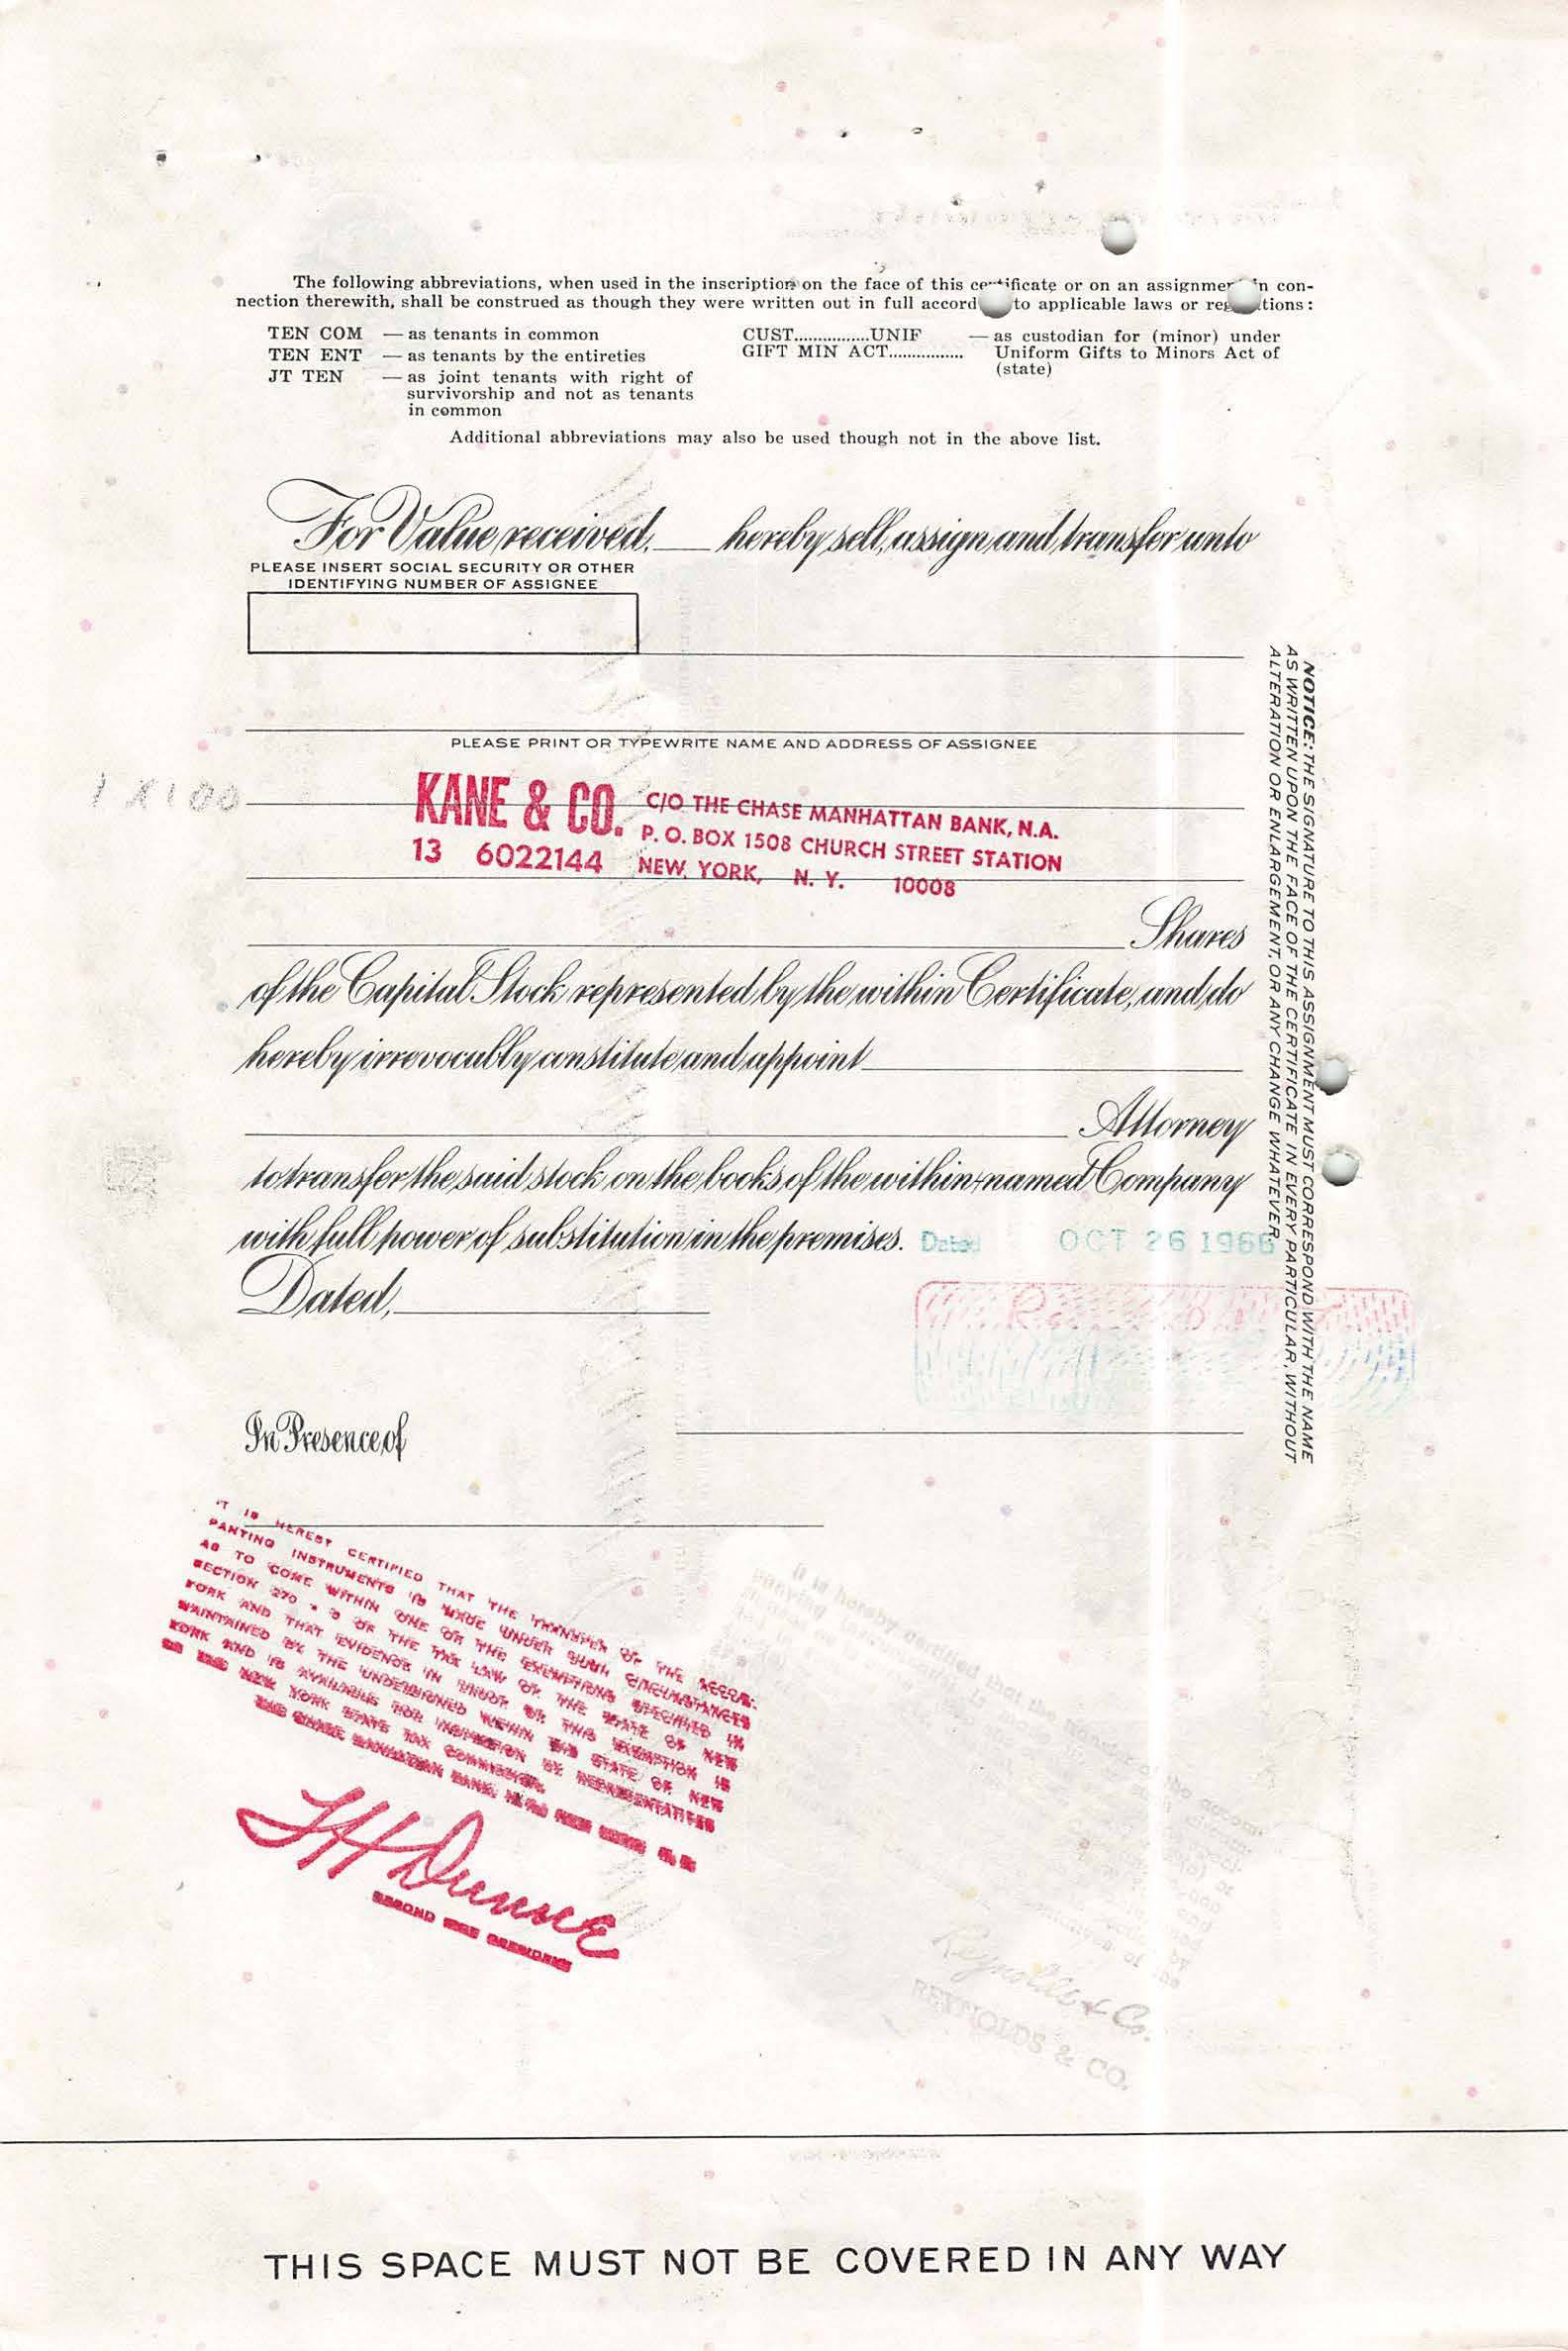 The following abbreviations, when used in the inscription on the face of this certificate or on an assignment in con-
nection therewith, shall be construed as though they were written out in full accord to applicable laws or regulations:
TEN COM — as tenants in common
TEN ENT — as tenants by the entireties
JT TEN — as joint tenants with right of
survivorship and not as tenants
in common
CUST................UNIF — as custodian for (minor) under
GIFT MIN ACT................ Uniform Gifts to Minors Act of
(state)
Additional abbreviations may also be used though not in the above list.
For Value received, ____ hereby sell, assign and transfer unto
PLEASE INSERT SOCIAL SECURITY OR OTHER
IDENTIFYING NUMBER OF ASSIGNEE
PLEASE PRINT OR TYPEWRITE NAME AND ADDRESS OF ASSIGNEE
1 X 100
KANE & CO. C/O THE CHASE MANHATTAN BANK, N.A.
P. O. BOX 1508 CHURCH STREET STATION
13 6022144 NEW YORK, N. Y. 10008
Shares
of the Capital Stock represented by the within Certificate, and do
hereby irrevocably constitute and appoint
Attorney
to transfer the said stock on the books of the within-named Company
with full power of substitution in the premises. Dated OCT 26 1966
Dated,
In Presence of
NOTICE: THE SIGNATURE TO THIS ASSIGNMENT MUST CORRESPOND WITH THE NAME
AS WRITTEN UPON THE FACE OF THE CERTIFICATE IN EVERY PARTICULAR, WITHOUT
ALTERATION OR ENLARGEMENT, OR ANY CHANGE WHATEVER.
IT IS HEREBY CERTIFIED THAT THE TRANSFER OF THE ACCOM-
PANYING INSTRUMENTS IS MADE UNDER SUCH CIRCUMSTANCES
AS TO COME WITHIN ONE OR THE EXEMPTIONS SPECIFIED IN
SECTION 270 OF THE TAX LAW OF THE STATE OF NEW
YORK AND THAT EVIDENCE IN PROOF OF THIS EXEMPTION IS
MAINTAINED BY THE UNDERSIGNED WITHIN THE STATE OF NEW
YORK AND IS AVAILABLE FOR INSPECTION BY REPRESENTATIVES
OF THE NEW YORK STATE TAX COMMISSION.
THE CHASE MANHATTAN BANK,
Dunne
SECOND VICE PRESIDENT
It is hereby certified that the transfer of the accom-
Reynolds & Co.
REYNOLDS & CO.
THIS SPACE MUST NOT BE COVERED IN ANY WAY